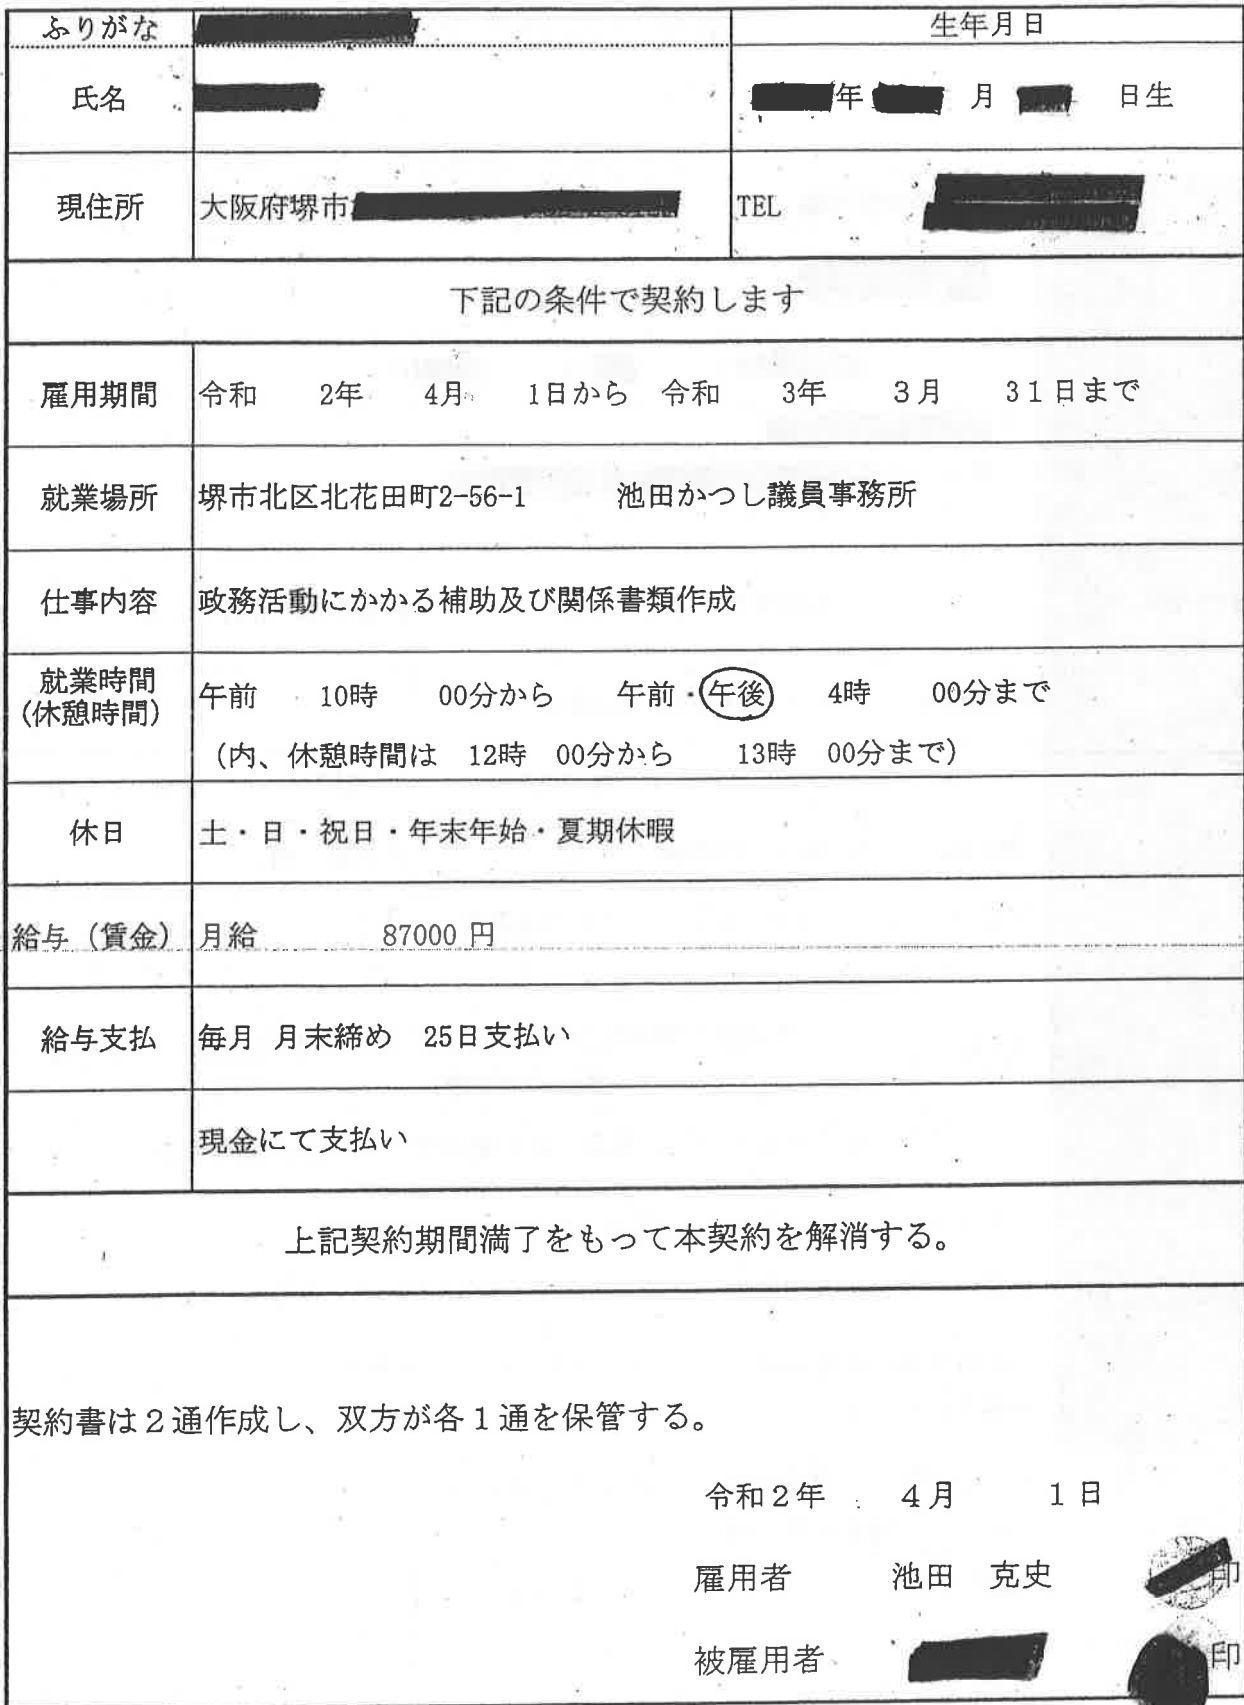 ふりがな
生年月日
氏名
年 月 日生
現住所 大阪府堺市 TEL
下記の条件で契約します
雇用期間 令和 2年 4月 1日から 令和 3年 3月 31日まで
就業場所 堺市北区北花田町2-56-1 池田かつし議員事務所
仕事内容 政務活動にかかる補助及び関係書類作成
就業時間
(休憩時間)
午前 10時 00分から 午前・午後 4時 00分まで
(内、休憩時間は 12時 00分から 13時 00分まで)
休日 土・日・祝日・年末年始・夏期休暇
給与(賃金) 月給 87000 円
給与支払 毎月 月末締め 25日支払い
現金にて支払い
上記契約期間満了をもって本契約を解消する。
契約書は2通作成し、双方が各1通を保管する。
令和2年 4月 1日
雇用者 池田 克史 印
被雇用者 印